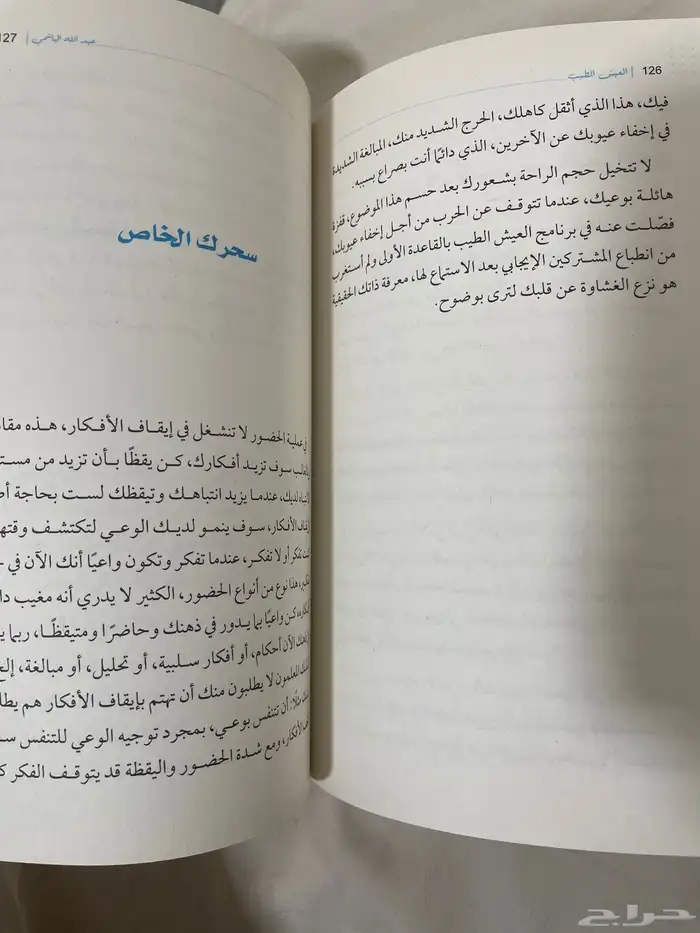 126 | العيش الطيب
فيك، هذا الذي أثقل كاهلك، الحرج الشديد منك، المبالغة الشديدة
في إخفاء عيوبك عن الآخرين، الذي دائمًا أنت بصراع بسببه.
لا تتخيل حجم الراحة بشعورك بعد حسم هذا الموضوع، قفزة
هائلة بوعيك، عندما تتوقف عن الحرب من أجل إخفاء عيوبك،
فصّلت عنه في برنامج العيش الطيب بالقاعدة الأولى ولم أستغرب
من انطباع المشتركين الإيجابي بعد الاستماع لها، معرفة ذاتك الحقيقية
هو نزع الغشاوة عن قلبك لترى بوضوح.
عبد الله | 127
سحرك الخاص
في عملية الحضور لا تنشغل في إيقاف الأفكار، هذه
سوف تزيد أفكارك، كن يقظًا بأن تزيد من
لديك، عندما يزيد انتباهك وتيقظك لست بحاجة
إيقاف الأفكار، سوف ينمو لديك الوعي لتكتشف وقتها
تفكر أو لا تفكر، عندما تفكر وتكون واعيًا أنك الآن في
هذا نوع من أنواع الحضور، الكثير لا يدري أنه مغيب
كن واعيًا بما يدور في ذهنك وحاضرًا ومتيقظًا، ربما
الآن أحكام، أو أفكار سلبية، أو تحليل، أو مبالغة، إلخ
المعلمون لا يطلبون منك أن تهتم بإيقاف الأفكار هم
مثلًا: أن تتنفس بوعي، بمجرد توجيه الوعي للتنفس
الأفكار، ومع شدة الحضور واليقظة قد يتوقف الفكر
حراج